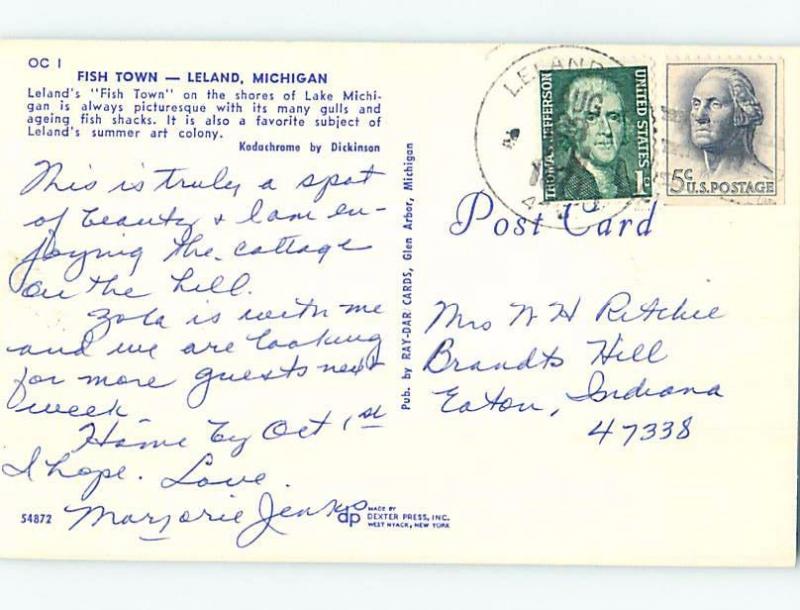 OC 1
FISH TOWN — LELAND, MICHIGAN
Leland's "Fish Town" on the shores of Lake Michi-
gan is always picturesque with its many gulls and
ageing fish shacks. It is also a favorite subject of
Leland's summer art colony.
Kodachrome by Dickinson
This is truly a spot
of beauty & I am en-
joying the cottage
on the hill.
Zola is with me
and we are looking
for more guests next
week
Home by Oct 1st
I hope. Love.
Marjorie Jenks
54872
dp
MADE BY
DEXTER PRESS, INC.
WEST NYACK, NEW YORK
Pub. by RAY-DAR CARDS, Glen Arbor, Michigan
LELAND
AUG
THOMAS JEFFERSON
UNITED STATES
1c
5c
U.S. POSTAGE
Post Card
Mrs W H Ritchie
Brandts Hill
Eaton, Indiana
47338